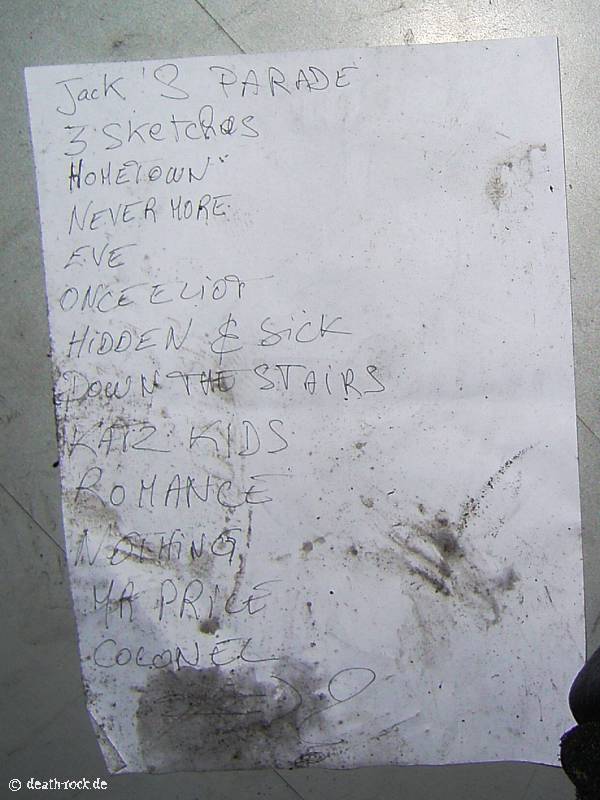 Jack'S PARADE
3 Sketches
HOMETOWN
NEVER MORE
EVE
ONCE ELIOT
HiDDEN & Sick
DOWN THE STAiRS
KATZ KIDS
ROMANCE
NOTHING
MR PRICE
COLONEL
© death-rock.de